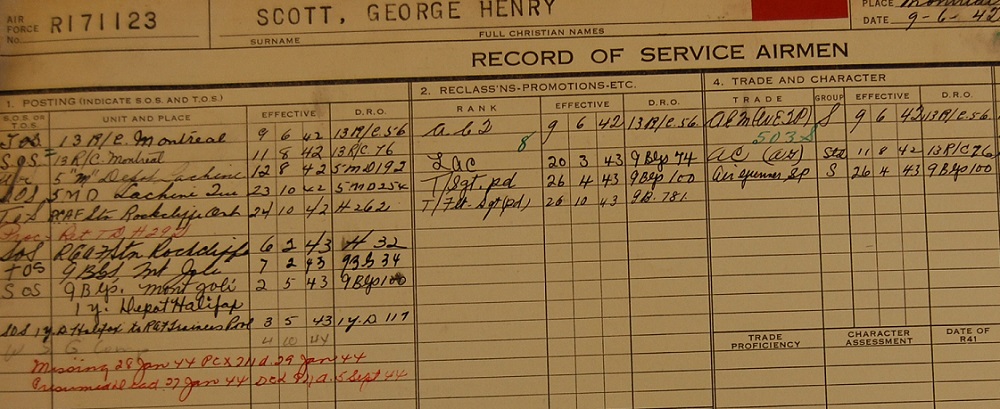 AIR FORCE No. R171123 SCOTT, GEORGE HENRY PLACE Montreal
SURNAME FULL CHRISTIAN NAMES DATE 9-6-42
RECORD OF SERVICE AIRMEN
1. POSTING (INDICATE S.O.S. AND T.O.S.)
S.O.S. OR T.O.S. UNIT AND PLACE EFFECTIVE D.R.O.
TOS 13 R/C. Montreal 9 6 42 13 R/C. 56
SOS 13 R/C. Montreal 11 8 42 13 R/C 76
5 "M" Depot Lachine 12 8 42 5 MD 192
SOS 5 MD Lachine Que 23 10 42 5 MD 254
RCAF Stn. Rockcliffe Ont 24 10 42 H 262
SOS RCAF Stn Rockcliffe 6 2 43 H 32
TOS 9 B&G Mt Joli 7 2 43 9 BG 34
SOS 9 B&G. Mont Joli 2 5 43 9 B&G 100
1 y. Depot Halifax
SOS 1 y. D Halifax to RAF Trainees Pool 3 5 43 1 y. D 117
4 10 44
Missing 28 Jan 44 29 Jan 44
Presumed dead 27 Jan 44 5 Sept 44
2. RECLASS'NS-PROMOTIONS-ETC.
RANK EFFECTIVE D.R.O.
AC2 9 6 42 13 R/C. 56
8
LAC 20 3 43 9 B&G 74
T/Sgt. pd 26 4 43 9 B&G 100
T/Flt. Sgt (pd) 26 10 43 9B. 781.
4. TRADE AND CHARACTER
TRADE GROUP EFFECTIVE D.R.O.
S 9 6 42 13 R/C. 56
503S
AC Std 11 8 42 13 R/C 76
Air gunner S 26 4 43 9 B&G 100
TRADE PROFICIENCY CHARACTER ASSESSMENT DATE OF R41